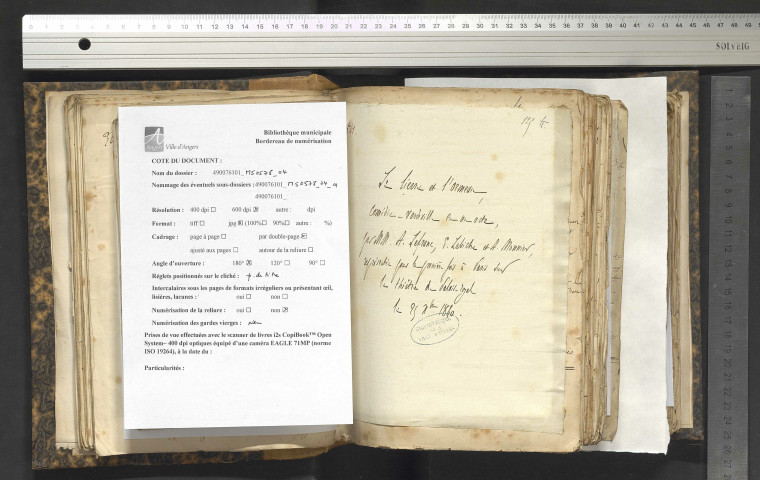 SOLVEIG
Angers Ville d'Angers
Bibliothèque municipale
Bordereau de numérisation
COTE DU DOCUMENT :
Nom du dossier : 490076101_MS0578_04
Nommage des éventuels sous-dossiers : 490076101_MS0578_04_
490076101_
Résolution : 400 dpi ☐ 600 dpi ☒ autre : dpi
Format : tiff ☐ jpg ☒ (100% ☐ 90% ☐ autre : %)
Cadrage : page à page ☐ par double-page ☒
ajusté aux pages ☐ autour de la reliure ☐
Angle d'ouverture : 180° ☒ 120° ☐ 90° ☐
Réglets positionnés sur le cliché :
Intercalaires sous les pages de formats irréguliers ou présentant œil,
lisières, lacunes : oui ☐ non ☐
Numérisation de la reliure : oui ☐ non ☒
Numérisation des gardes vierges : non
Prises de vue effectuées avec le scanner de livres i2s CopiBook™ Open
System– 400 dpi optiques équipé d'une caméra EAGLE 71MP (norme
ISO 19264), à la date du :
Particularités :
et l'
Comédie-Vaudeville en un acte,
par MM. A. Lefranc, E. Labiche et A. Monnier,
représentée pour la première fois à Paris sur
le théâtre du Palais-Royal
le 25